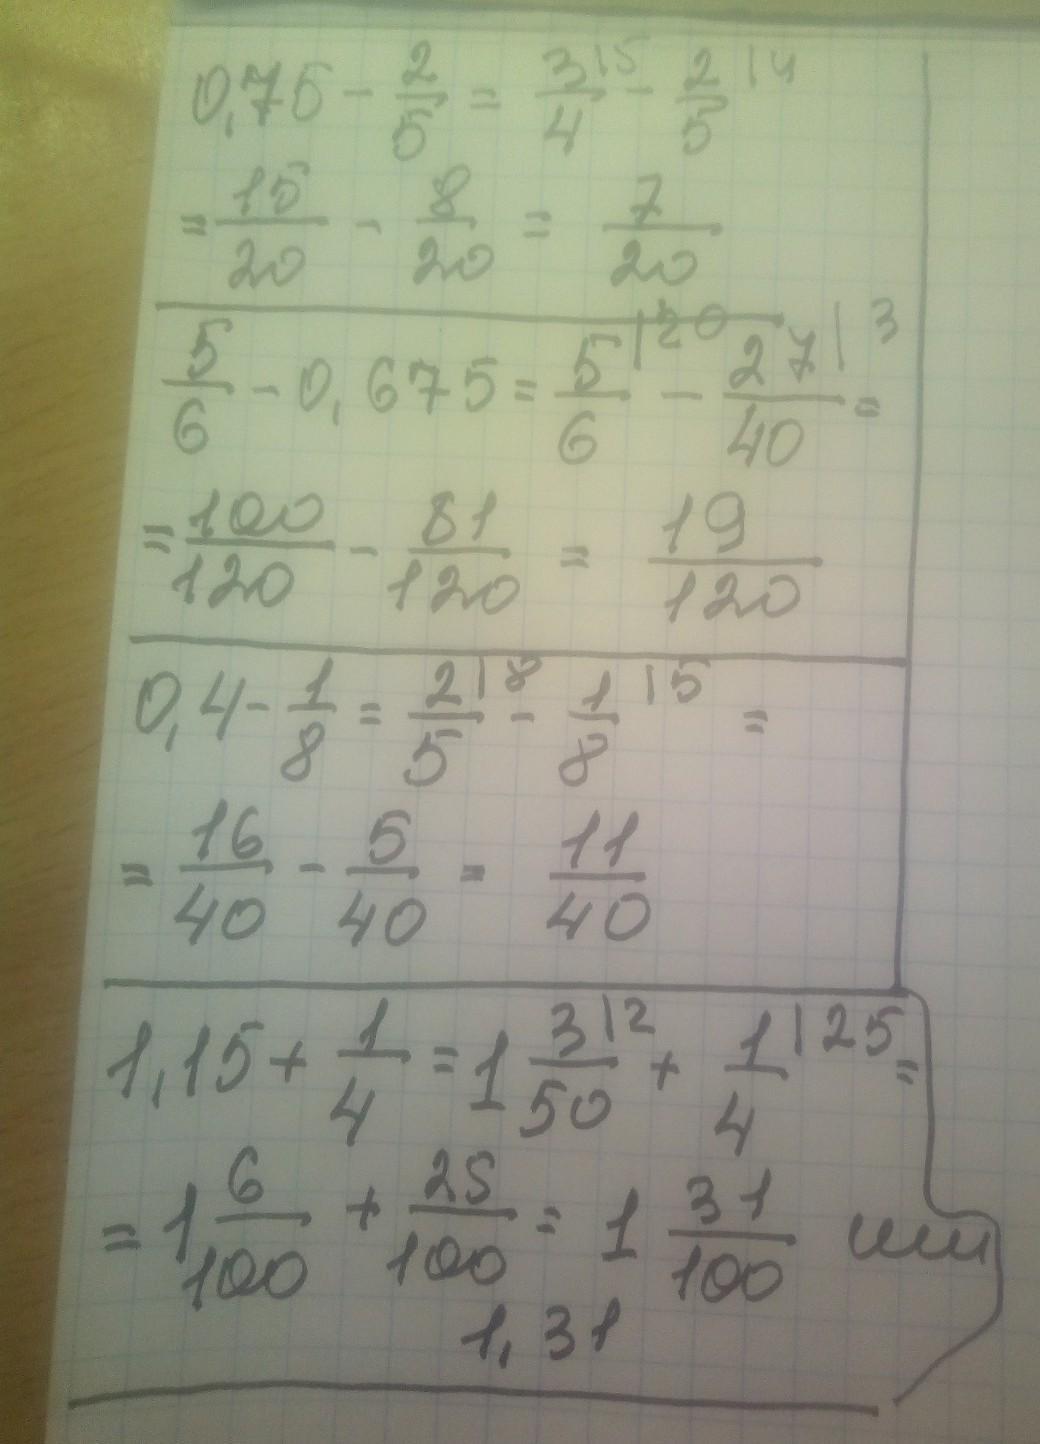 0,75 - 2/5 = 3/4 |5 - 2/5 |4
= 15/20 - 8/20 = 7/20
5/6 - 0,675 = 5/6 |20 - 27/40 |3 =
= 100/120 - 81/120 = 19/120
0,4 - 1/8 = 2/5 |8 - 1/8 |5 =
= 16/40 - 5/40 = 11/40
1,15 + 1/4 = 1 3/50 |2 + 1/4 |25 =
= 1 6/100 + 25/100 = 1 31/100 или
1,31